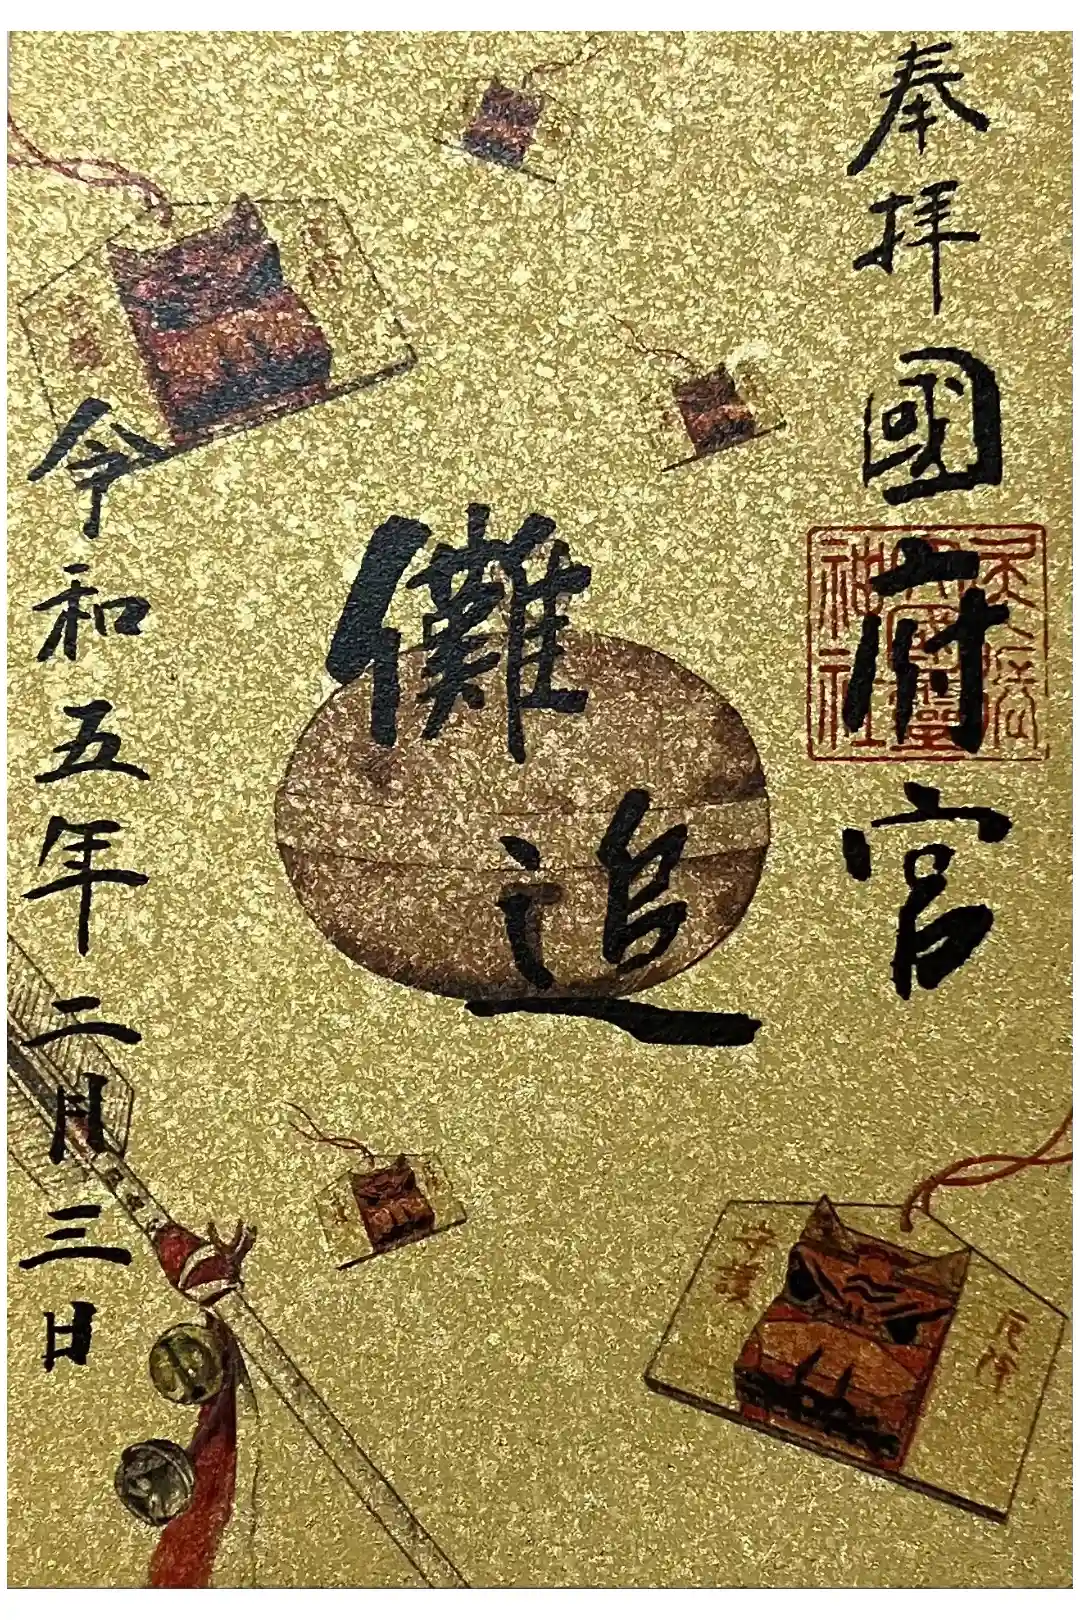 奉拝
國府宮
尾張
大國霊
神社
儺追
令和五年二月三日
厄除
守護